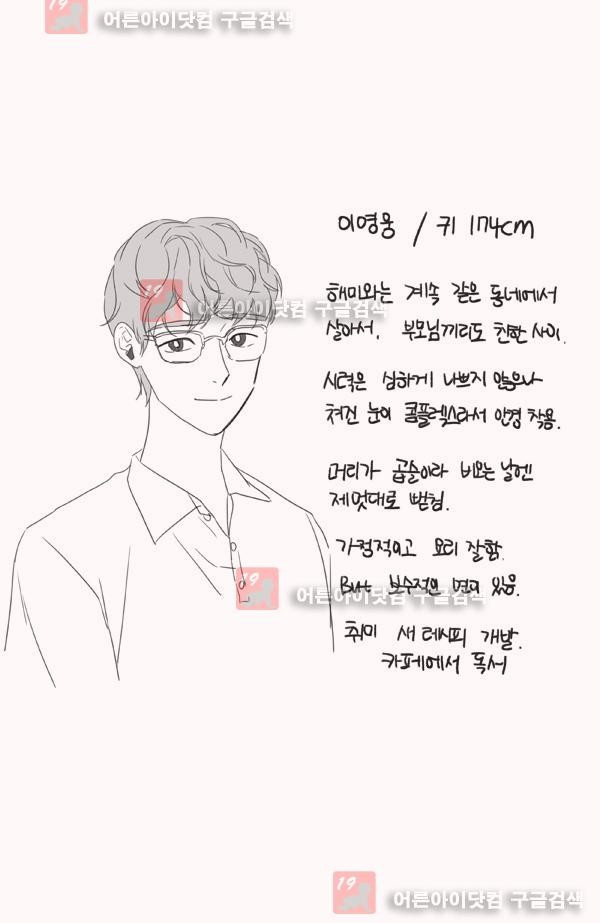 19 어른아이닷컴 구글검색
이영웅 / 키 174cm
해미와는 계속 같은 동네에서
19 어른아이닷컴 구글검색
살아서, 부모님끼리도 친한 사이.
시력은 심하게 나쁘지 않으나
쳐진 눈이 콤플렉스라서 안경 착용.
머리가 곱슬이라 비오는 날엔
제멋대로 뻗침.
가정적이고 요리 잘함.
But 보수적인 면이 있음.
19 어른아이닷컴 구글검색
취미 새 레시피 개발.
카페에서 독서
19 어른아이닷컴 구글검색